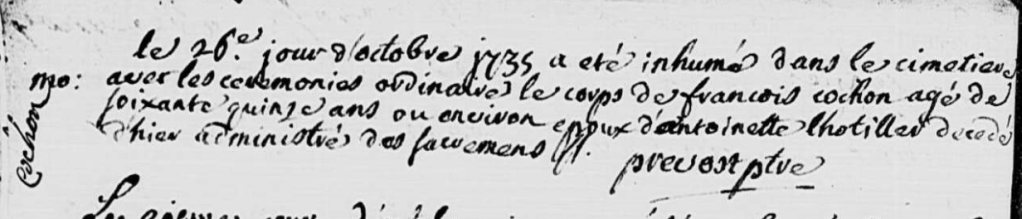 le 26e. jour d'octobre 1735 a eté inhumé dans le cimetiere
mo: aver les ceremonies ordinaires le corps de francois cochon agé de
soixante quinze ans ou environ epoux d'antoinette lhotillier decedé
d'hier administré des sacremens
prevost ptre
Cochon